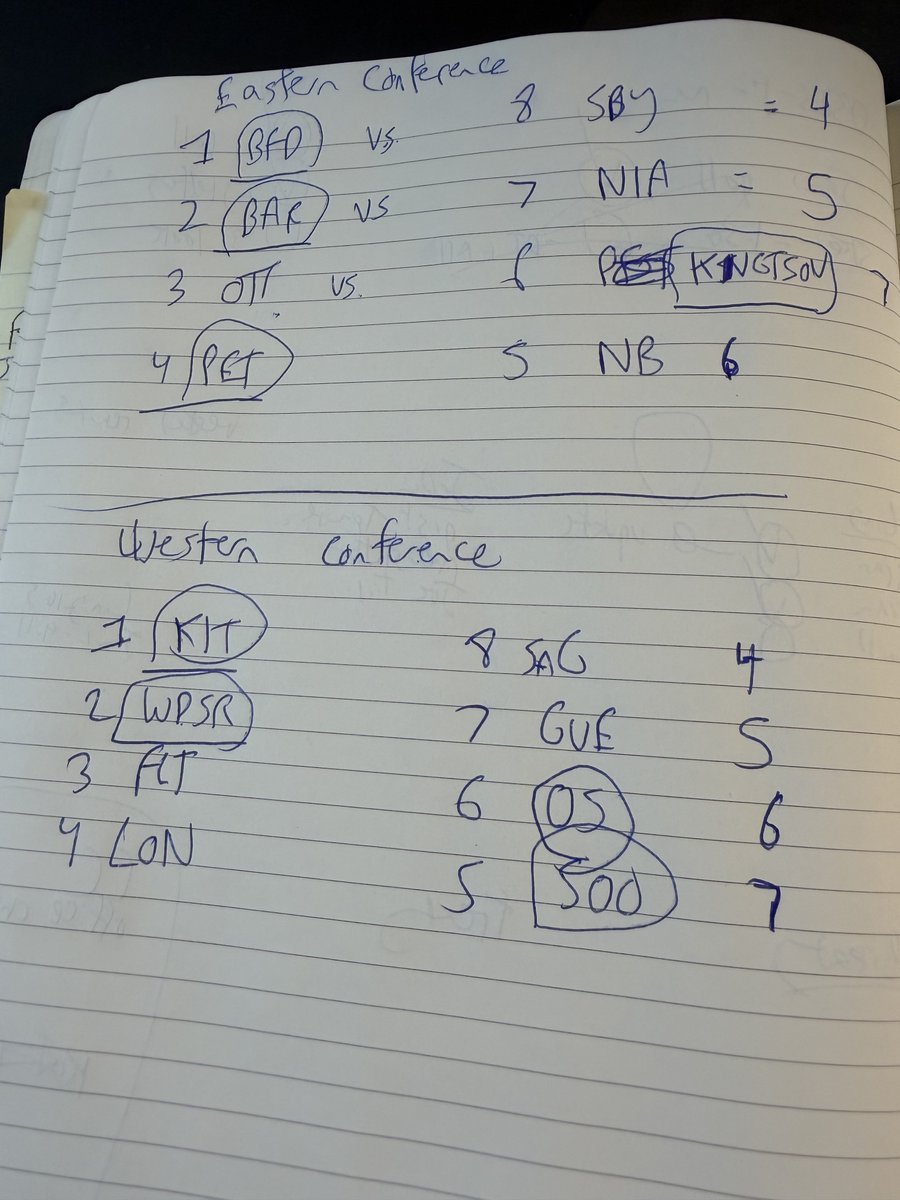 Eastern Conference
1 BFD vs. 8 SBY = 4
2 BAR vs 7 NIA = 5
3 OTT vs. 6 KINGTSON 7
4 PET 5 NB 6
Western Conference
1 KIT 8 SAG 4
2 WPSR 7 GUE 5
3 FLT 6 OS 6
4 LON 5 SOO 7